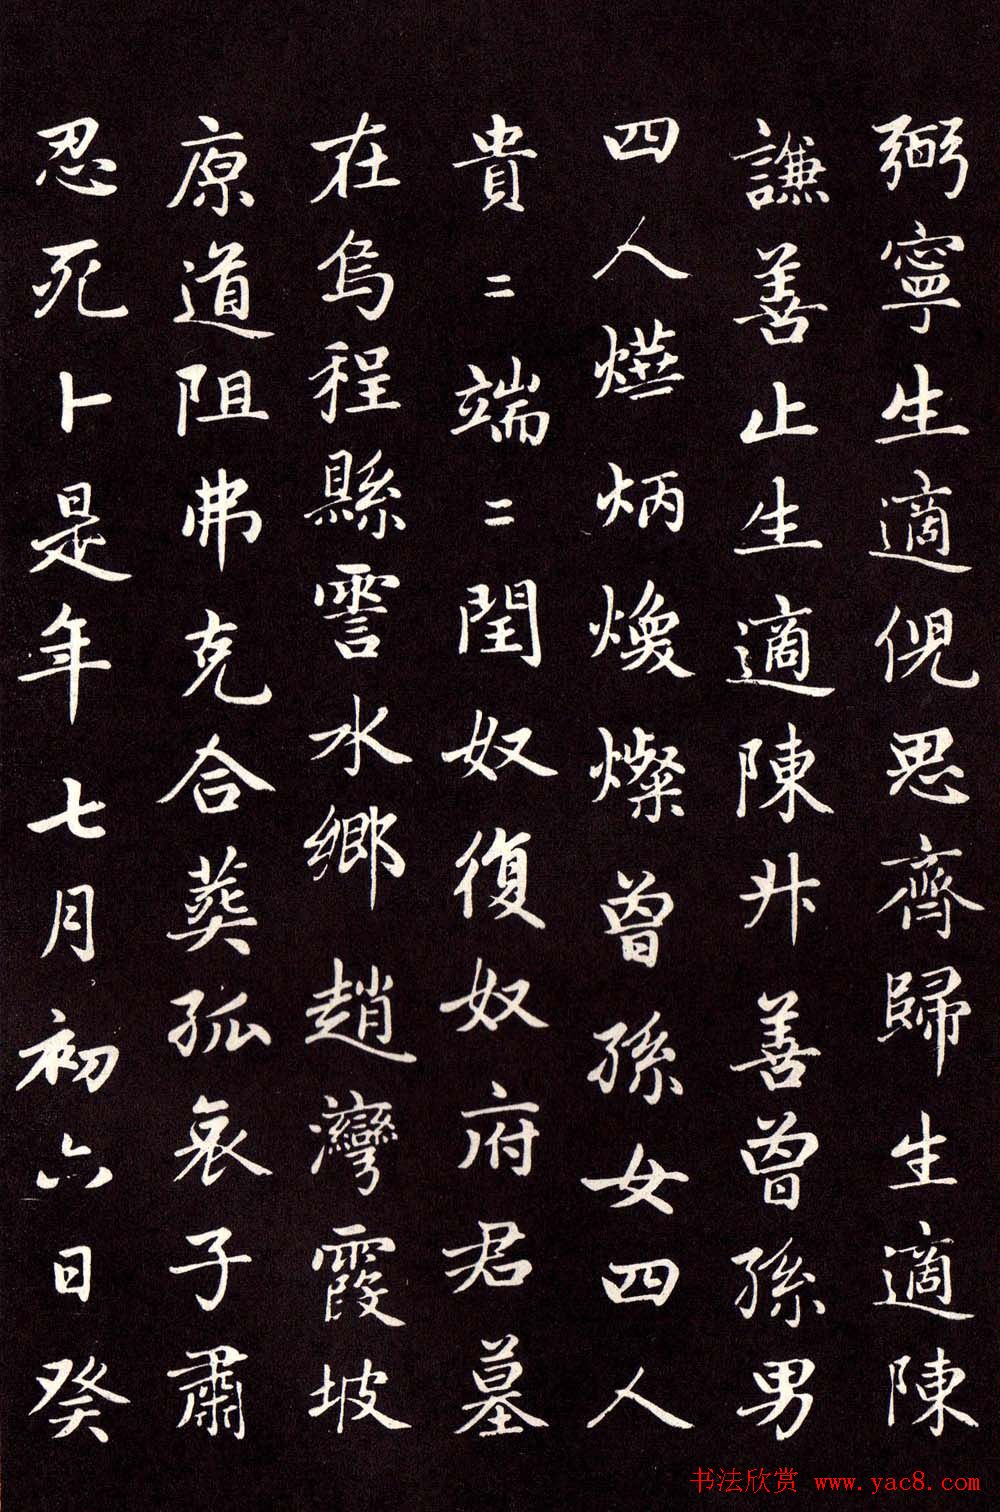 弼寧生適倪思齊歸生適陳
謙善止生適陳廾善曾孫男
四人㷼炳煥燦曾孫女四人
貴二端二閏奴復奴府君墓
在烏程縣霅水鄉趙灣霞坡
原道阻弗克合葬孤哀子肅
忍死卜是年七月初六日癸
书法欣赏 www.yac8.com